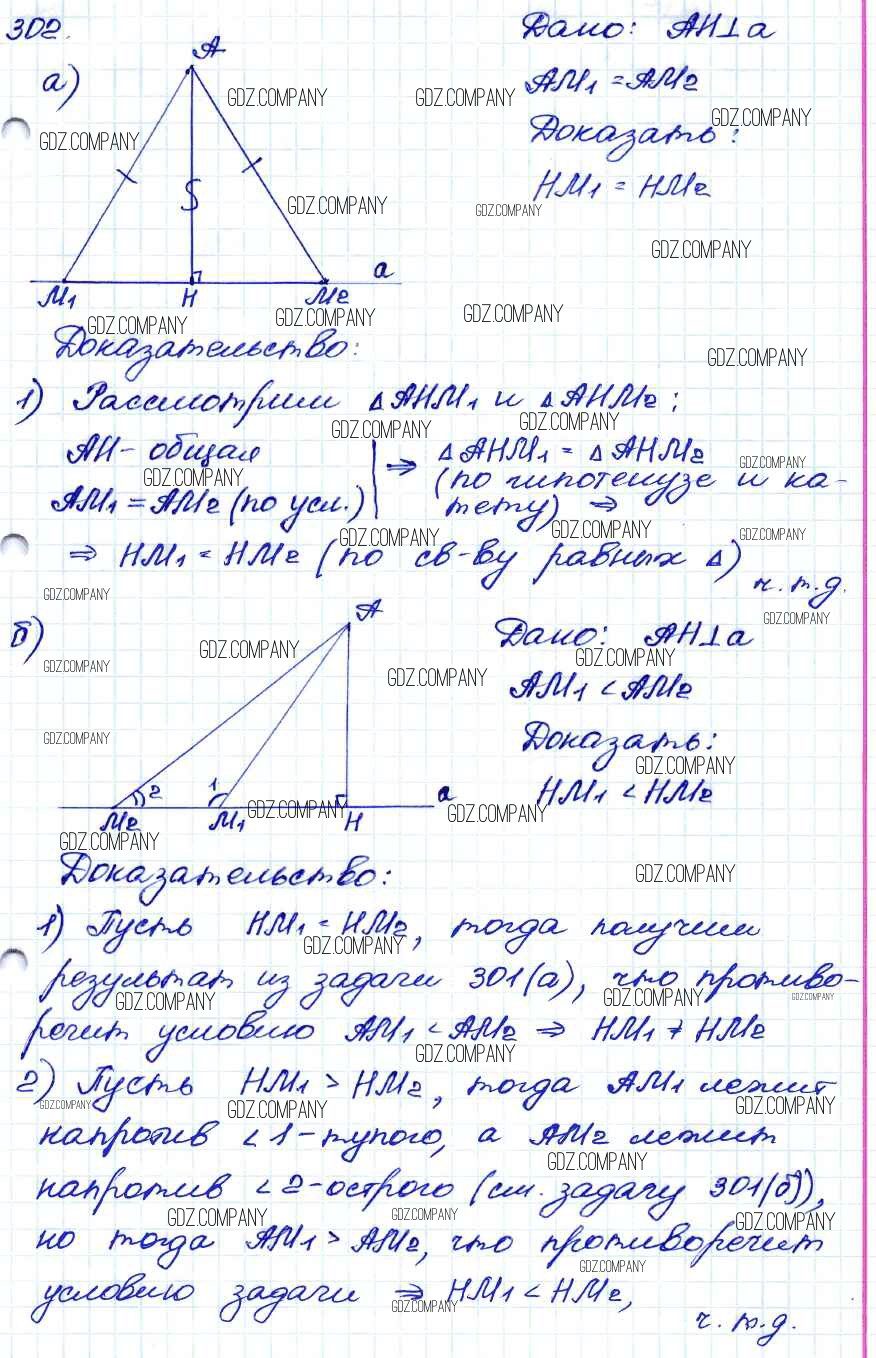 302.
Дано: AH⊥a
а)
A
AM1 = AM2
Доказать:
HM1 = HM2
a
M1 H M2
Доказательство:
1) Рассмотрим △AHM1 и △AHM2:
AH - общая
AM1 = AM2 (по усл.)
⇒ △AHM1 = △AHM2
(по гипотенузе и ка-
тету) ⇒
⇒ HM1 = HM2 (по св-ву равных △)
ч.т.д.
б)
A
Дано: AH⊥a
AM1 < AM2
Доказать:
HM1 < HM2
2 1 a
M2 M1 H
Доказательство:
1) Пусть HM1 = HM2, тогда получим
результат из задачи 301(а), что противо-
речит условию AM1 < AM2 ⇒ HM1 ≠ HM2
2) Пусть HM1 > HM2, тогда AM1 лежит
напротив ∠1-тупого, а AM2 лежит
напротив ∠2-острого (см. задачу 301(б)),
но тогда AM1 > AM2, что противоречит
условию задачи ⇒ HM1 < HM2,
ч.т.д.
GDZ.COMPANY